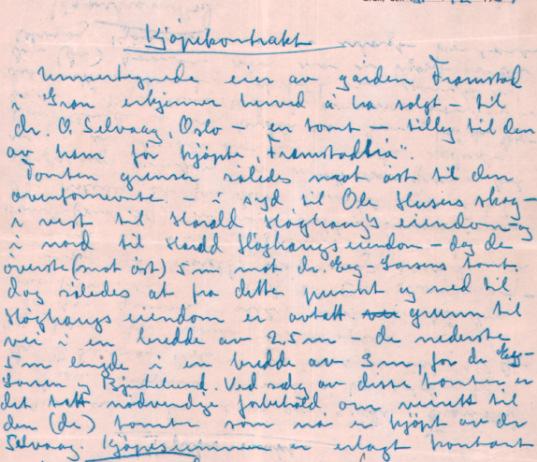 Kjøpekontrakt
Unnertegnede eier av gården Framstad
i Gran erkjenner herved å ha solgt – til
dr. O. Selvaag, Oslo – en tomt – tillegg til den
av ham før kjøpte „Framstadlia".
Tomten grenser således mot øst til den
ovenfornevnte – i syd til Ole Husers skog –
i vest til Harald Høghaugs eiendom – og
i nord til Harald Høghaugs eiendom – dog de
øverste (mot øst) 5 m mot dr. Larsens tomt
dog således at fra dette punkt og ned til
Høghaugs eiendom er avtatt grunn til
vei i en bredde av 2,5 m – de nederste
5 m lengde i en bredde av 3 m, for dr
Larsen og Ved salg av disse tomter er
det tatt nødvendige forbehold om veirett til
den (de) tomter som nå er kjøpt av dr
Selvaag. Kjøpesummen er erlagt kontant